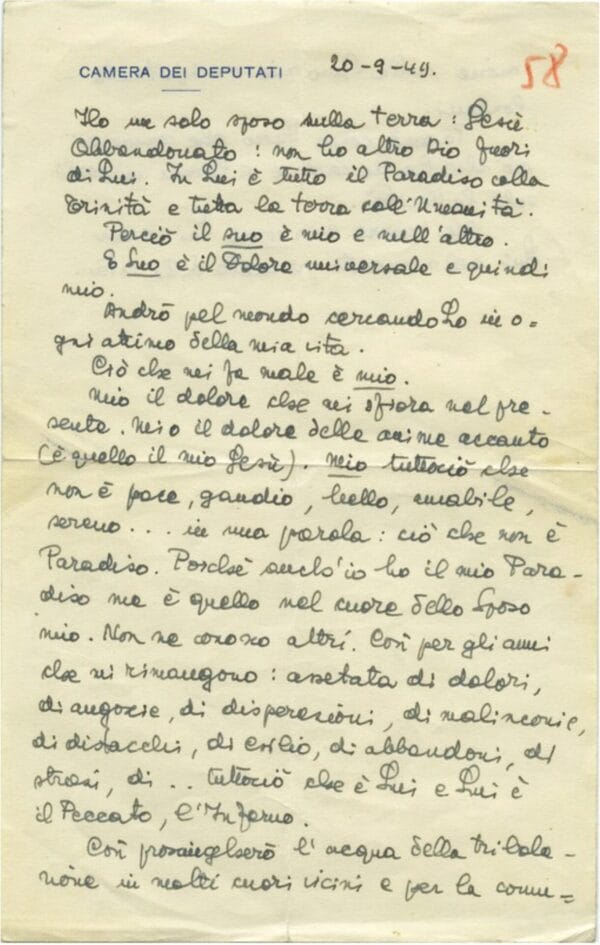 CAMERA DEI DEPUTATI
20-9-49.
58
Ho un solo sposo sulla terra: Gesù
Abbandonato: non ho altro Dio fuori
di Lui. In Lui è tutto il Paradiso colla
Trinità e tutta la terra coll'Umanità.
Perciò il suo è mio e null'altro.
E Suo è il Dolore universale e quindi
mio.
Andrò pel mondo cercandoLo in o=
gni attimo della mia vita.
Ciò che mi fa male è mio.
Mio il dolore che mi sfiora nel pre-
sente. Mio il dolore delle anime accanto
(è quello il mio Gesù). Mio tuttociò che
non è pace, gaudio, bello, amabile,
sereno... in una parola: ciò che non è
Paradiso. Poichè anch'io ho il mio Para-
diso ma è quello nel cuore dello Sposo
mio. Non ne conosco altri. Così per gli anni
che mi rimangono: assetata di dolori,
di angoscie, di disperazioni, di malinconie,
di distacchi, di esilio, di abbandoni, di
strazi, di .. tuttociò che è Lui e Lui è
il Peccato, l'Inferno.
Così prosciugherò l'acqua della tribola-
zione in molti cuori vicini e per la comu=